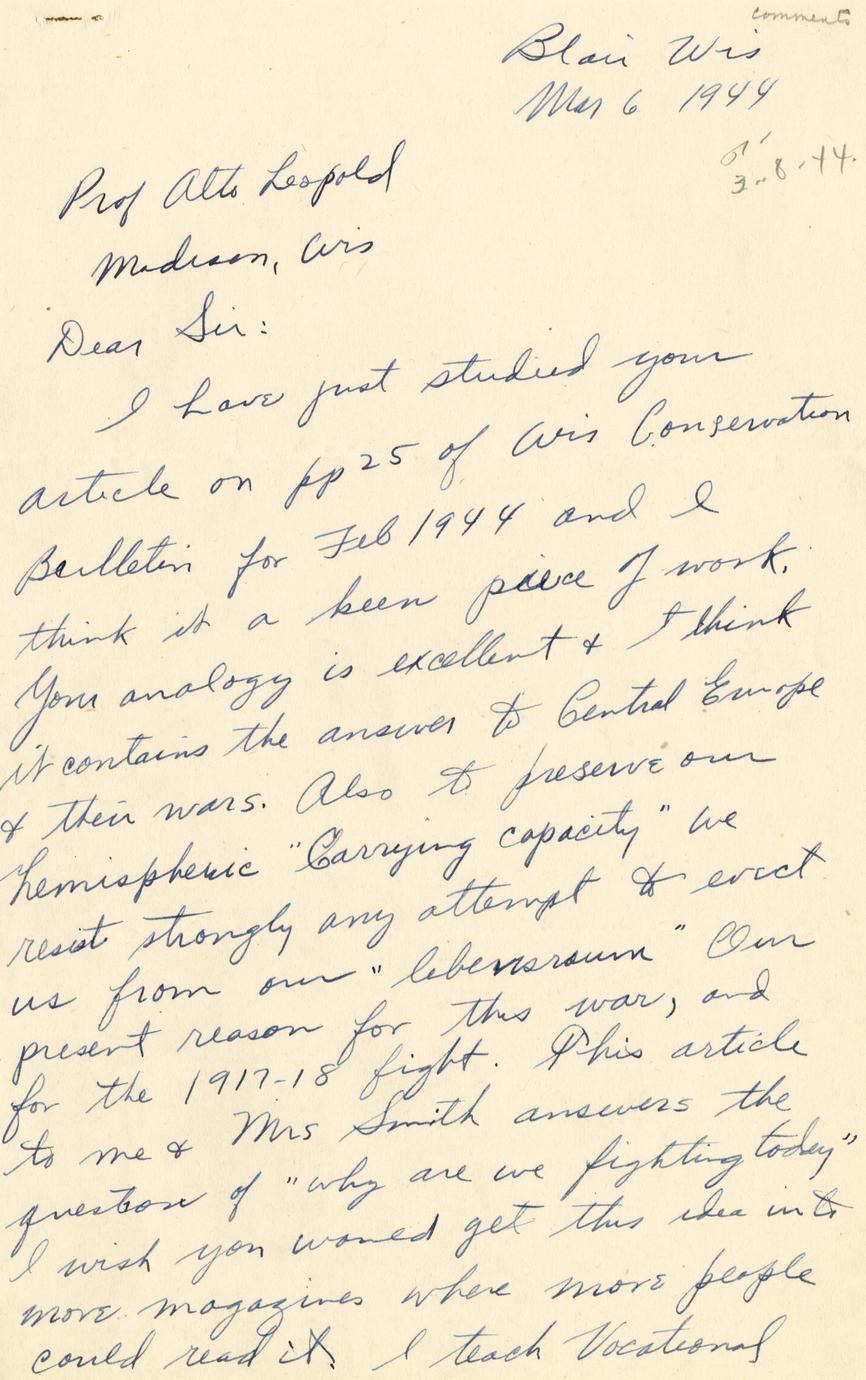 comments
Blair Wis
Mar 6 1944
3-8-44.
Prof Alto Leopold
Madison, Wis
Dear Sir:
I have just studied your
article on pp 25 of Wis Conservation
Bulletin for Feb 1944 and I
think it a keen piece of work.
Your analogy is excellent & I think
it contains the answer to Central Europe
& their wars. Also to preserve our
hemispheric "Carrying capacity" we
resist strongly any attempt to evict
us from our "lebensraum" Our
present reason for this war, and
for the 1917-18 fight. This article
to me & Mrs Smith answers the
question of "why are we fighting today"
I wish you would get this idea into
more magazines where more people
could read it. I teach Vocational